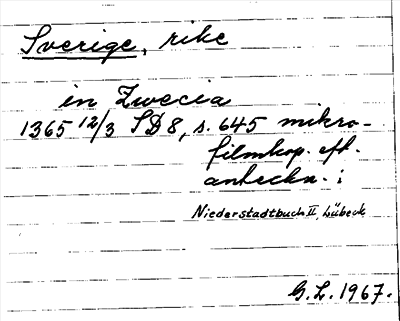 Sverige, rike
in Zwecia
1365 12/3 SD 8, s. 645 mikro-
filmkop. eft.
anteckn. i
Niederstadtbuch II, Lübeck
G. L. 1967.